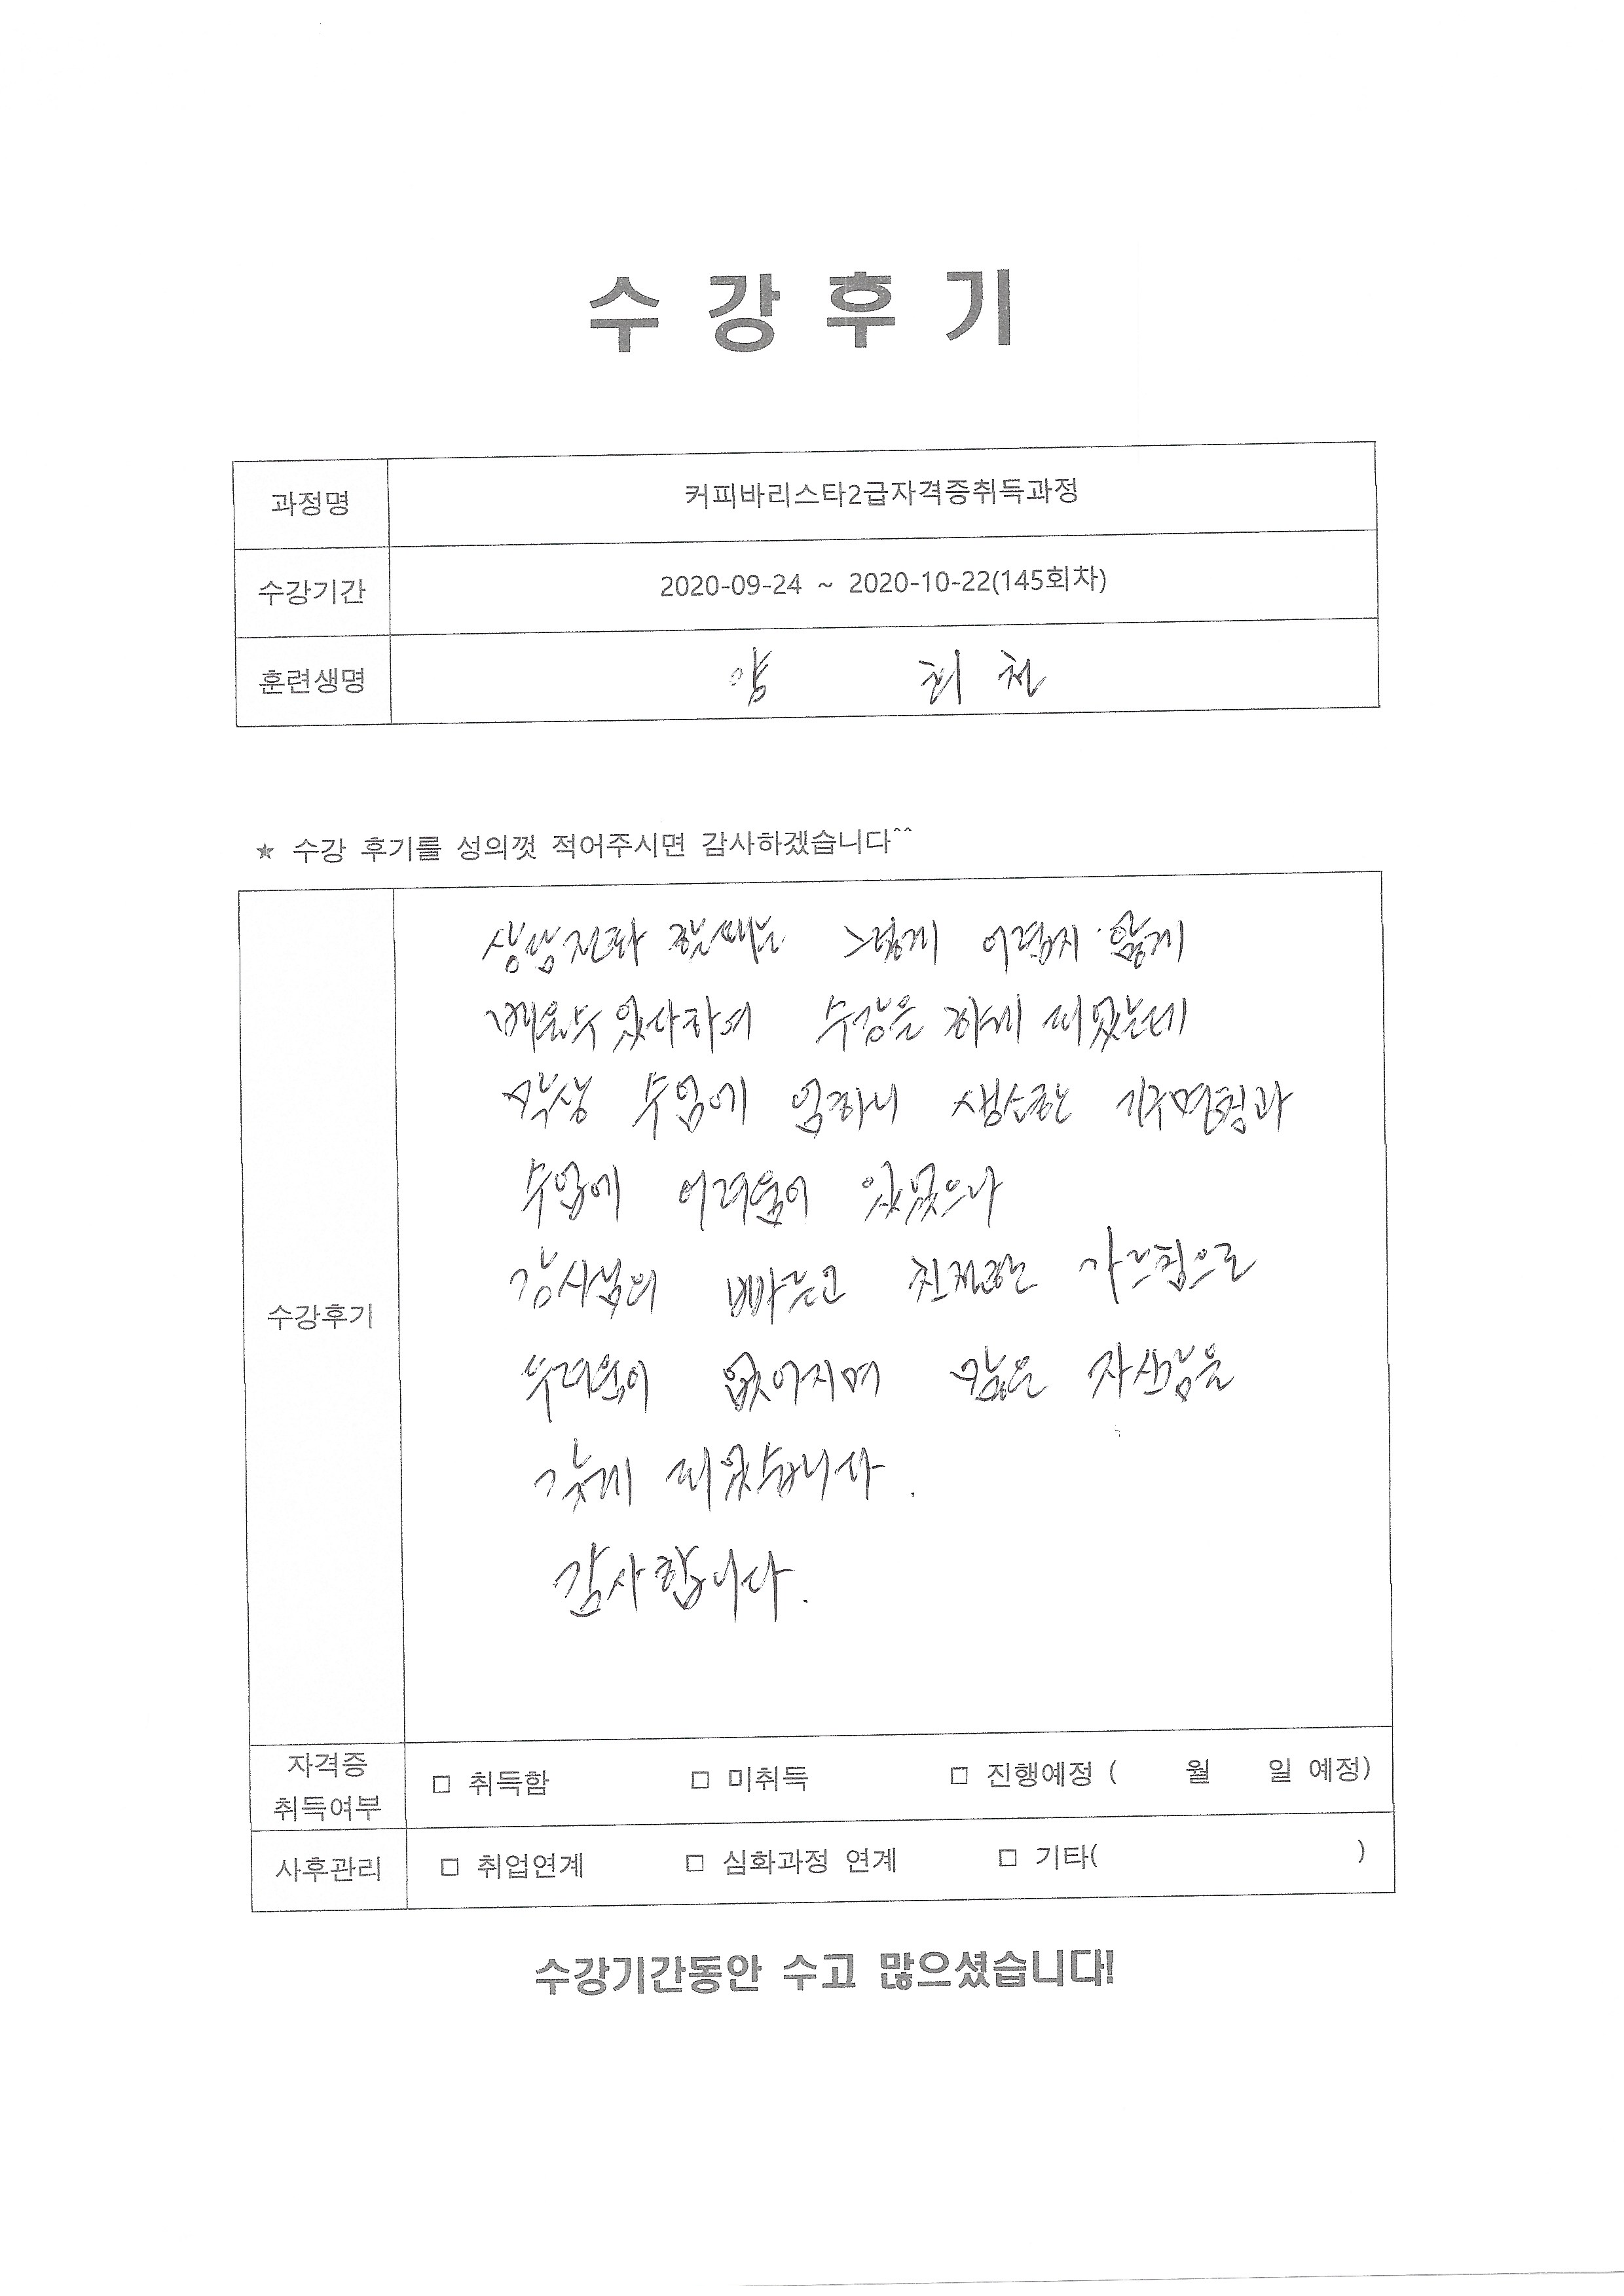 수 강 후 기
과정명 커피바리스타2급자격증취득과정
수강기간 2020-09-24 ~ 2020-10-22(145회차)
훈련생명 양 희 천
★ 수강 후기를 성의껏 적어주시면 감사하겠습니다^^
수강후기
상담전화 했을때는 그렇게 어렵지 않게
배울수 있다하여 수강을 하게 되었는데
막상 수업에 임하니 생소한 기구명칭과
수업에 어려움이 있었으나
강사님의 빠르고 친절한 가르침으로
두려움이 없어지며 많은 자신감을
갖게 되었습니다.
감사합니다.
자격증
취득여부
□ 취득함 □ 미취득 □ 진행예정 ( 월 일 예정)
사후관리 □ 취업연계 □ 심화과정 연계 □ 기타( )
수강기간동안 수고 많으셨습니다!